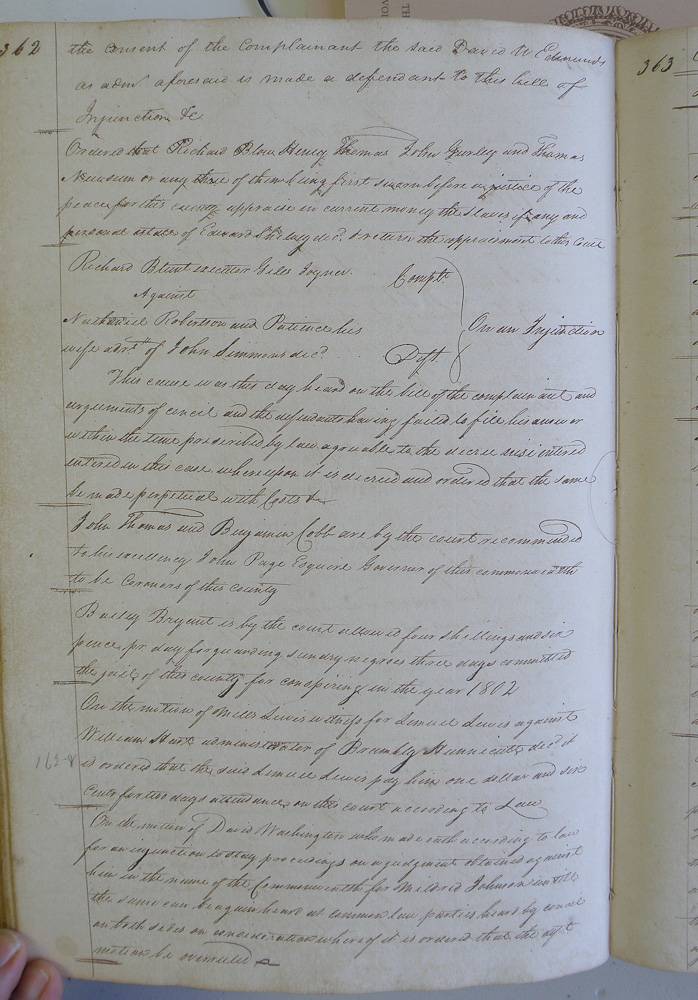 362
the consent of the Complainant the said David W Edmunds
as admr. aforesaid is made a defendant to this bill of
Injunction &c
Ordered that Richard Blow Henry Thomas John Gurley and Thomas
Newsum or any three of them being first sworn before a justice of the
peace for this county appraise in current money the slaves if any and
personal estate of Edward decd. & return the appraisement to this Court
Richard Blunt executor Giles Joyner Complt.
Against
Nathaniel Robertson and Patience his On an Injunction
wife admx. of John Simmons decd. Deft.
This cause was this day heard on the bill of the complainant and
arguments of concel and the defendants having failed to file his answer
within the time prescribed by law agreeable to the decree nisi entered
entered in this case whereupon it is decreed and ordered that the same
be made perpetual with Costs &c
John Thomas and Benjamin Cobb are by the court recommended
to his excellency John Page Esquire Governor of this commonwealth
to be Coroners of this County
Bailey Bryant is by the court allowed four shillings and six
pence pr. day for guarding sundry negroes three days committed
the jail of this county for conspiring in the year 1802
On the motion of Mills Lewis witness for Lemuel Lewis against
William Hart administrator of Brambly Hunnicutt decd. it
is ordered that the said Lemuel Lewis pay him one dollar and six
Cents for two days attendance on this court according to Law
On the motion of David Washington who made oath according to law
for an injunction to stay proceedings on a judgment obtained against
him in the name of the Commonwealth for Mildred Johnson untill
the same can be again heard at common law parties heard by concel
on both sides on consideration whereof it is ordered that the afst.
motion be overruled
363